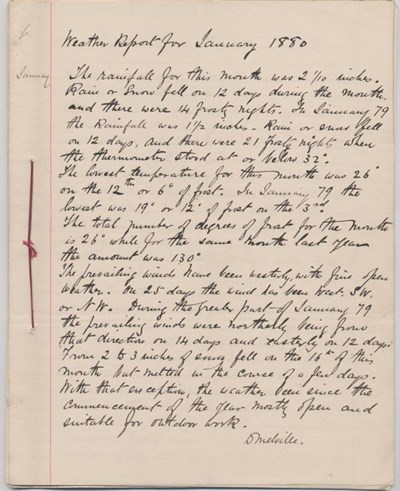 6
Weather Report for January 1880
January
The rainfall for this month was 2 1/10 inches.
Rain or Snow fell on 12 days during the month,
and there were 14 frosty nights. In January 79
the Rainfall was 1 1/2 inches. Rain or snow fell
on 12 days, and there were 21 frosty nights when
the thermometer stood at or below 32°.
The lowest temperature for this month was 26°
on the 12th or 6° of frost. In January 79 the
lowest was 19° or 12° of frost on the 3rd
The total number of degrees of frost for the month
is 26° while for the same month last year
the amount was 130°
The prevailing winds have been westerly, with fine open
weather. On 25 days the wind has been West. S.W.
or N.W. During the greater part of January 79
the prevailing winds were northerly being from
that direction on 14 days and easterly on 12 days.
From 2 to 3 inches of snow fell on the 16th of this
month but melted in the course of a few days.
With that exception, the weather been since the
commencement of the year mostly open and
suitable for outdoor work.
D Melville.